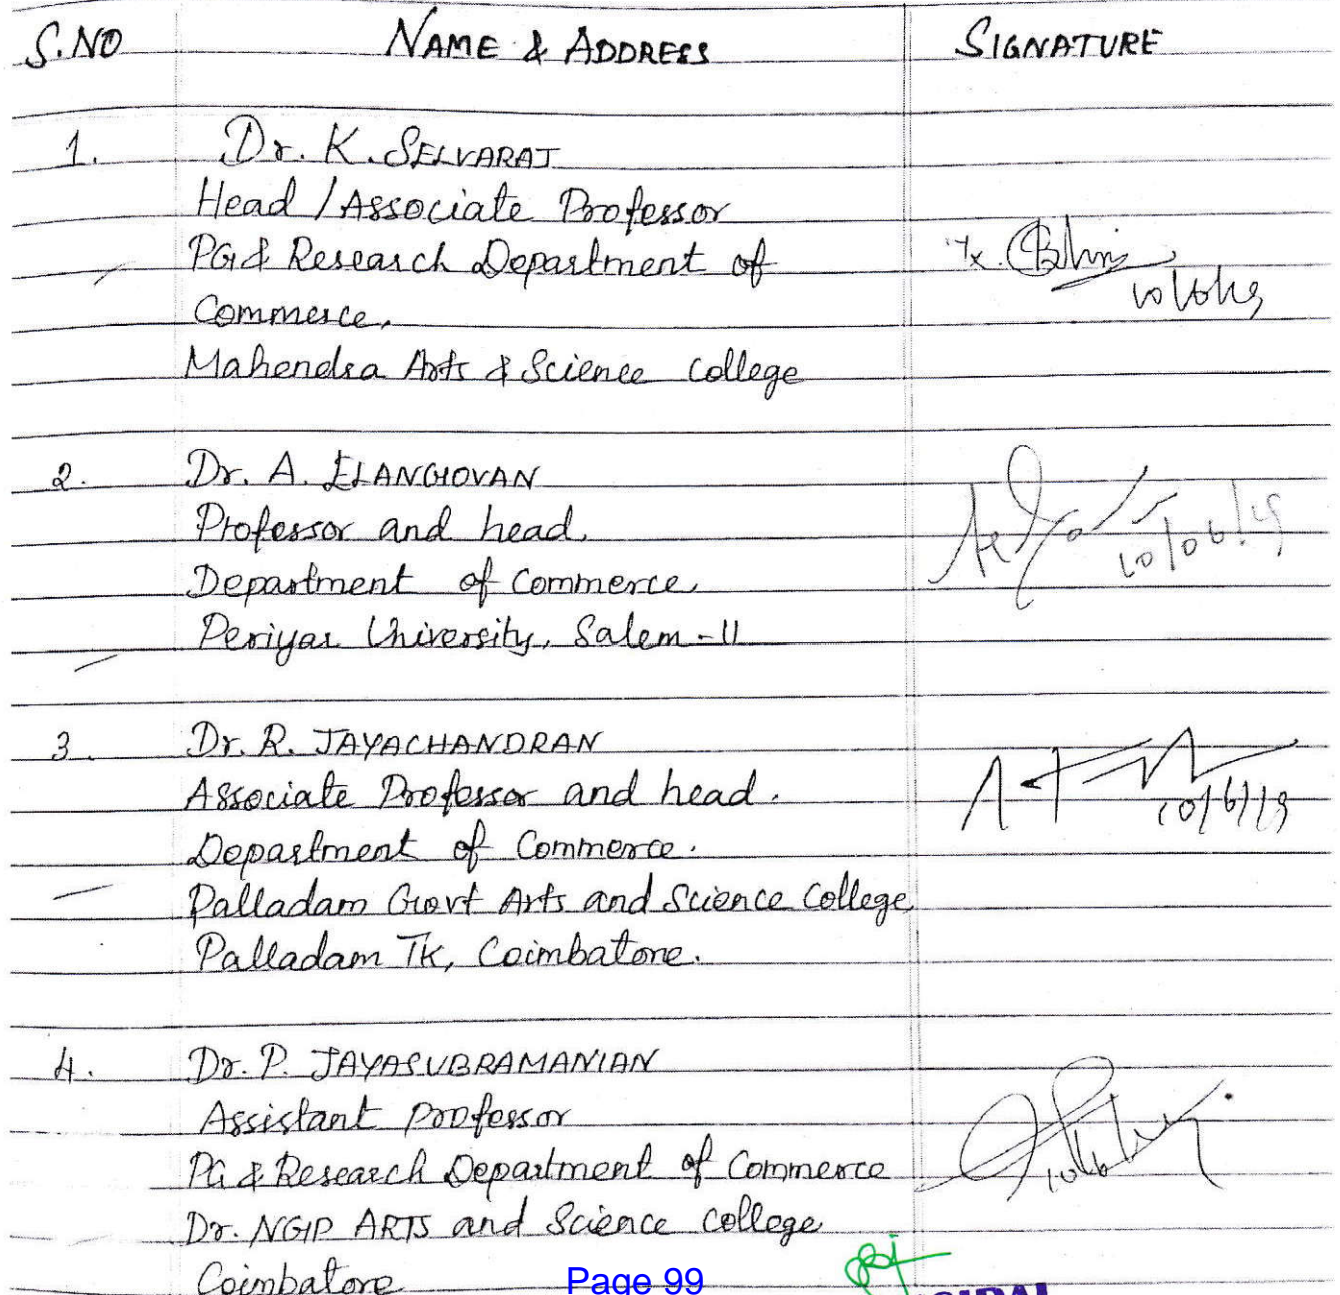 S.NO NAME & ADDRESS SIGNATURE
1. Dr. K. SELVARAJ
Head / Associate Professor
PG & Research Department of
Commerce,
10/6/19
Mahendra Arts & Science College
2. Dr. A. ELANGOVAN
Professor and head,
10/06/19
Department of Commerce,
Periyar University, Salem-11
3. Dr. R. JAYACHANDRAN
Associate Professor and head.
10/6/19
Department of Commerce.
Palladam Govt Arts and Science College
Palladam TK, Coimbatore.
4. Dr. P. JAYASUBRAMANIAN
Assistant professor
PG & Research Department of Commerce
Dr. NGP ARTS and Science College
Coimbatore
Page 99